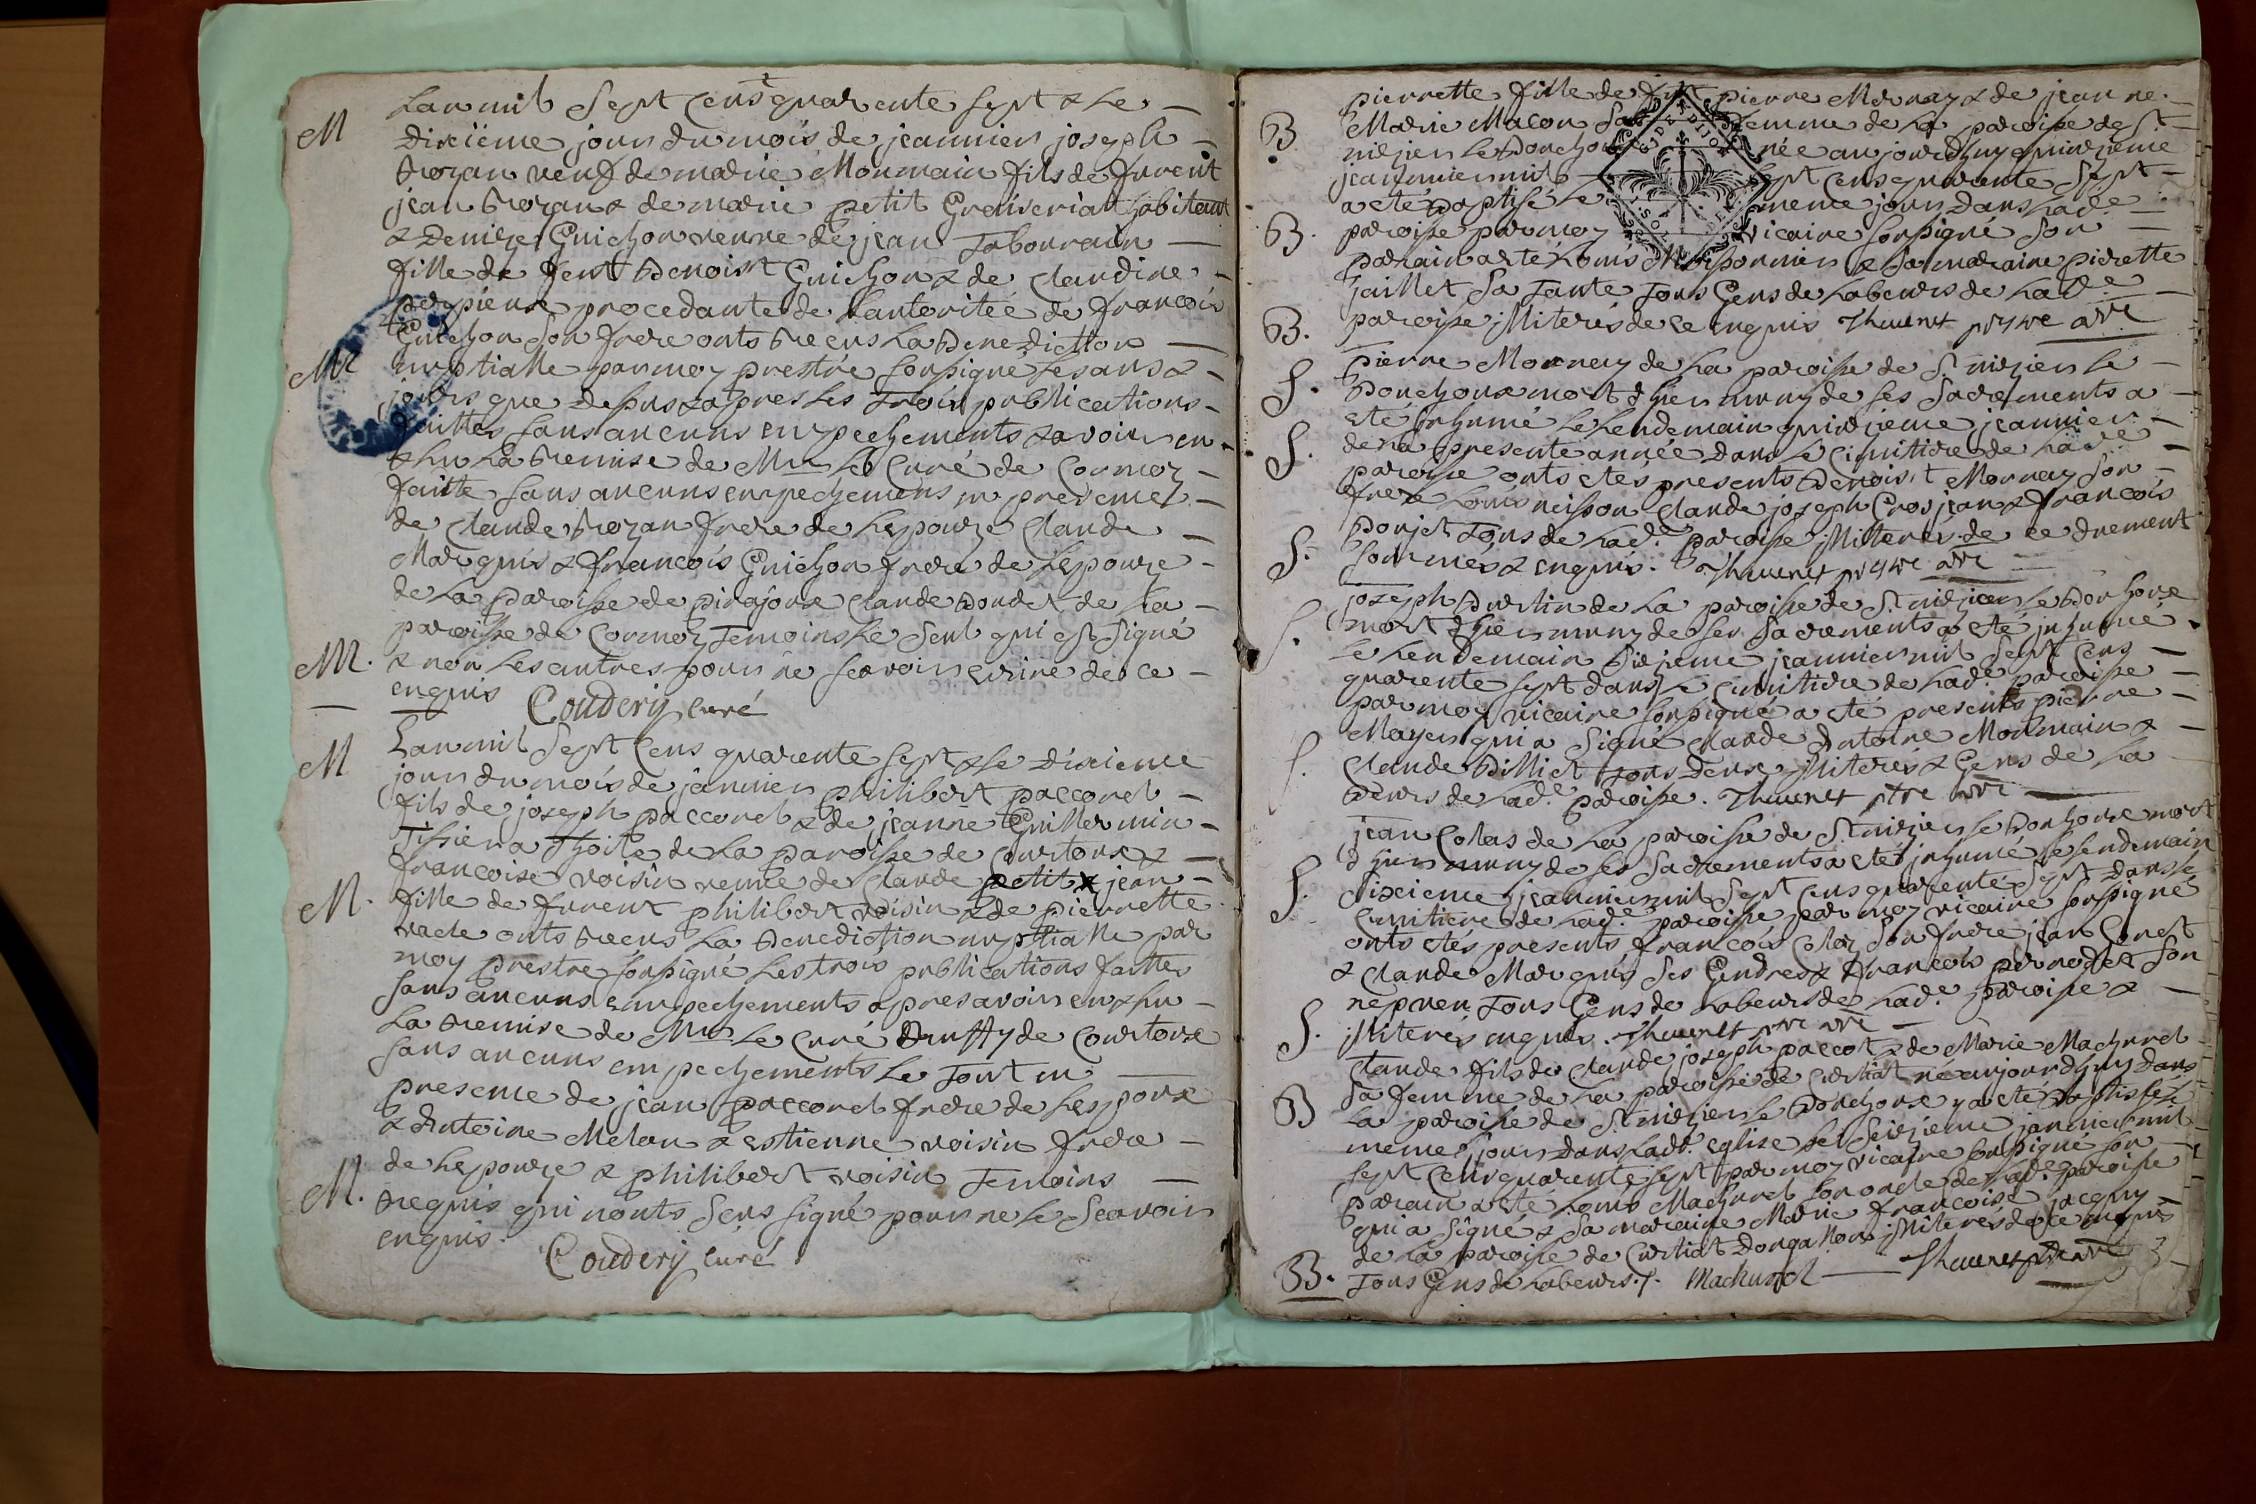 M
Lan mil Sept Cens quarente sept & Le
dixieme jour du mois de jeannier joseph
trozan veuf de marie Monmain fils de furent
jean trozan & de marie petit Granserian habitant
& Denize Guichon veuve de jean Tabourain
fille de feut Benoist Guichon & de Claudine
procedante de Lautoritee de francois
Guichon Son frere onts receus La Benediction
M
nuptialle par moy prestre soussigné Les ans &
jours que dessus & apres Les Trois publications
faittes sans aucuns empechements & avoir en
& lu La remise de Mre Le Curé de Cormoz
faitte sans aucuns empechemens en presence
de Claude trozan frere de Lepouze Claude
Marquis & francois Guichon frere de Lepouze
de La paroisse de pirajoux Claude Boudet de La
paroisse de Cormoz Temoins Le Seul qui est Signé
M.
& non Les autres pour ne scavoir ecrire de ce
enquis Coudery curé
M
Lan mil Sept Cens quarente sept & le dixieme
jour du mois de jannier philibert paccoret
fils de joseph paccoret & de jeanne Guillermin
de La paroisse de Courtoux &
francoise voisin veuve de Claude petit x jean
M.
fille de furent philibert voisin & de pierrette
vacle onts receus La Benediction nuptialle par
moy prestre soussigné Les trois publications faittes
sans aucuns empechements apres avoir en & lu
La remise de Mre Le Curé Druffy de Courtoux
sans aucuns empechements Le Tout en
presence de jean paccoret frere de Lespoux
& Antoine Melan & estienne voisin frere
de Lepouze & philibert voisin Temoins
M.
requis qui nonts Sceus signé pour ne Le Scavoir
enquis.
Coudery curé
pierrette fille de pierre Mornay & de jeanne
B
Marie Macon Sa femme de La paroise de St
nizier le Bouchoux née aujourdhuy quinzieme
jeannier mil sept Cens quarente Sept
a eté Baptisé Le meme jour dans Lade
B.
paroise par moy vicaire soussigné Son
parain a eté Louis & Sa maraine pierette
jaillet Sa Tante Tous Gens de Labeurs de Lade
B.
paroise jlliterés de ce enquis Thevenet ptre vre
pierre Mornay de La paroise de St nizier le
S.
Bouchoux mort dhier muny de ses Sacrements a
eté inhumé Le Lendemain quinzieme jeannier
S.
de La presente année dans Le Cimitiere de Lade
paroise onts etés presents Benoist Mornay Son
frere Louis neisson Claude joseph Crosjean & francois
Donjet Tous de Lade. paroise jlliterés de ce duement
S.
sommés & enquis. Thevenet ptre vre
joseph Burlin de La paroise de St nizier le Bonhoux
S.
mort dhier muny de ses Sacrements a eté inhumé
Le Lendemain sizieme jeannier mil Sept Cens
quarente sept dans Le Cimitiere de Lade paroise
par moy vicaire soussigné a eté presents pierre
Mayer qui a Signé Claude Antoine Monmain &
S.
Claude Billiet Tous deux jlliterés & Gens de La
beurs de Lade. paroise. Thevenet ptre vre
jean Colas de La paroise de St nizier le Bonhoux mort
dhier muny de ses Sacrements a eté inhumé Le Lendemain
S.
dixieme jeannier mil Sept Cens quarente Sept dans Le
Cimitiere de Lade. paroise par moy vicaire soussigné
onts etés presents francois Colas Son frere jean Conet
& Claude Marquis Ses Gendres & francois pernodet Son
nepveu Tous Gens de Labeurs de Lade. paroise &
S.
jlliterés enquis. Thevenet ptre vre
Claude fils de Claude joseph paccot & de Marie Machurel
Sa femme de La paroise de Curtiat né aujourdhuy dans
B
La paroise de St nizier le Bouchoux y a eté Baptisé le
meme jour dans Lade. eglise Le Seizieme jannier mil
sept Cens quarente sept par moy vicaire soussigné Son
parain a eté Louis Machurel Son oncle de Lade paroise
qui a Signé & Sa maraine Marie francoise jacquy
de La paroise de Curtiat Dongalon jlliterés de ce enquis
BB.
Tous Gens de Labeurs./. Machurel Thevenet ptre vre